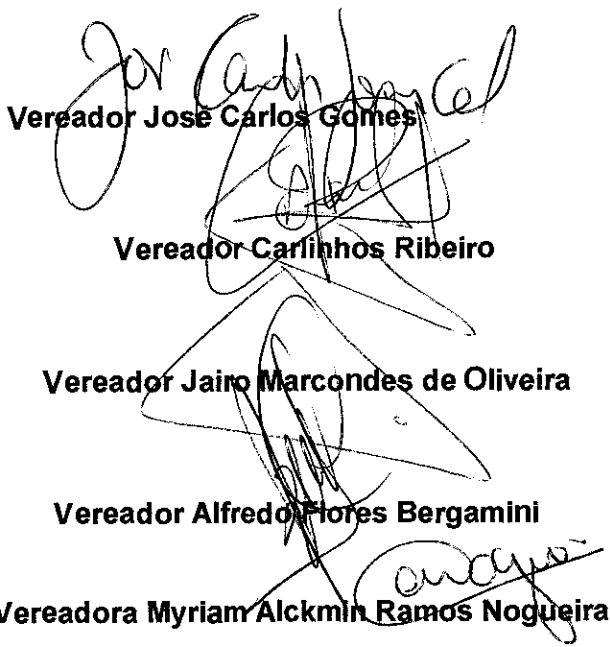 Vereador José Carlos Gomes
Vereador Carlinhos Ribeiro
Vereador Jairo Marcondes de Oliveira
Vereador Alfredo Flores Bergamini
Vereadora Myriam Alckmin Ramos Nogueira